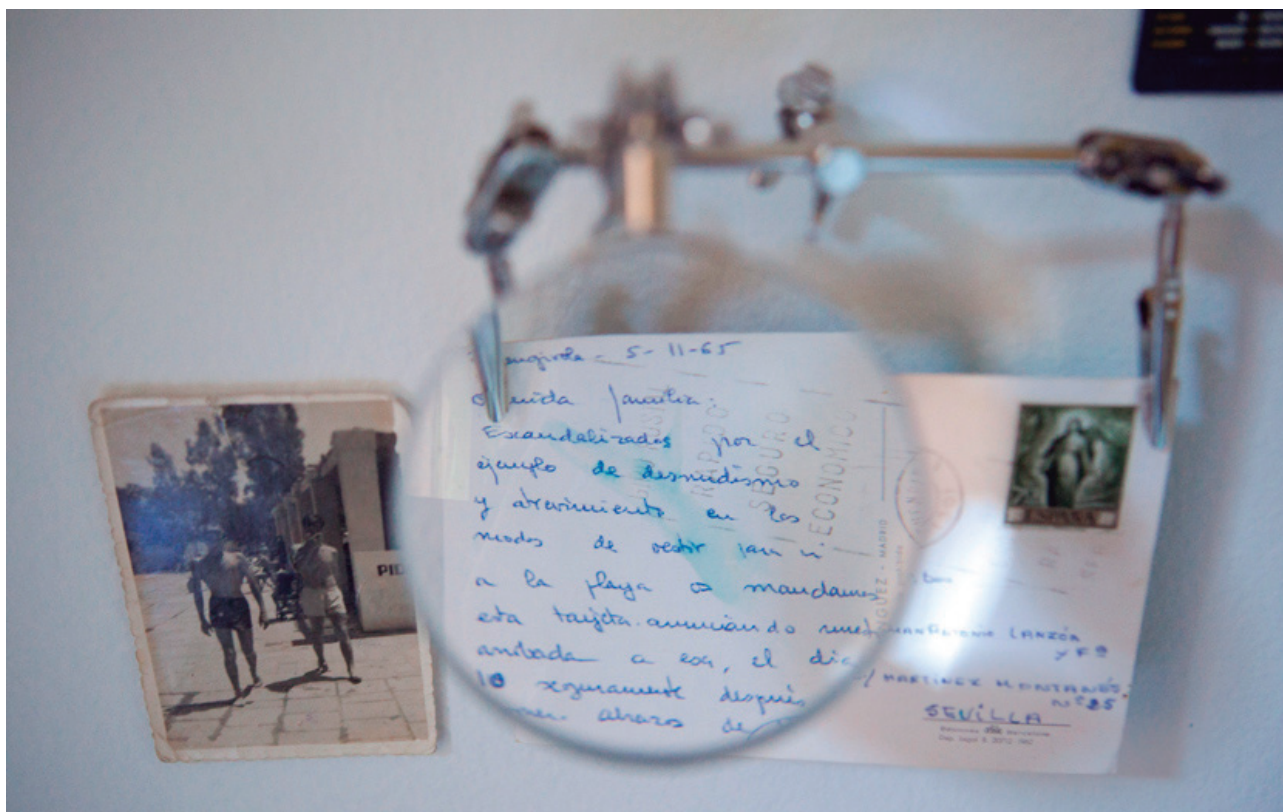 PID
5-11-65
familia:
Escandalizados por el
ejemplo de desnudismo
y atrevimiento en los
modos de vestir para ir
a la playa os mandamos
esta tarjeta anunciándo
arribada a esa, el dia
10 seguramente después
abrazos de
RAPIDO
SEGURO
ECONOMICO
ESPAÑA
LANZÓN
y Fª
MARTINEZ MONTAÑES
nº 25
SEVILLA